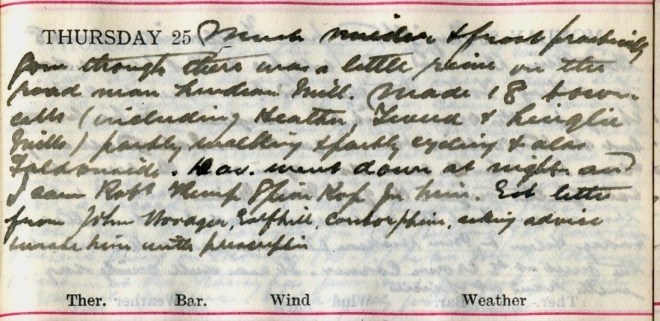 THURSDAY 25 Much milder & frost practically
gone though there was a little rime on the
road near Lindean Mill. Made 18 town
calls (including Heather, Tweed & Lenglie
Mills) partly walking & partly cycling & also
Faldonside. Dav. went down at night and
I saw Robt Kemp & for him. Got letter
from John, Corstorphine, asking advice
wrote him with prescription
Ther. Bar. Wind Weather